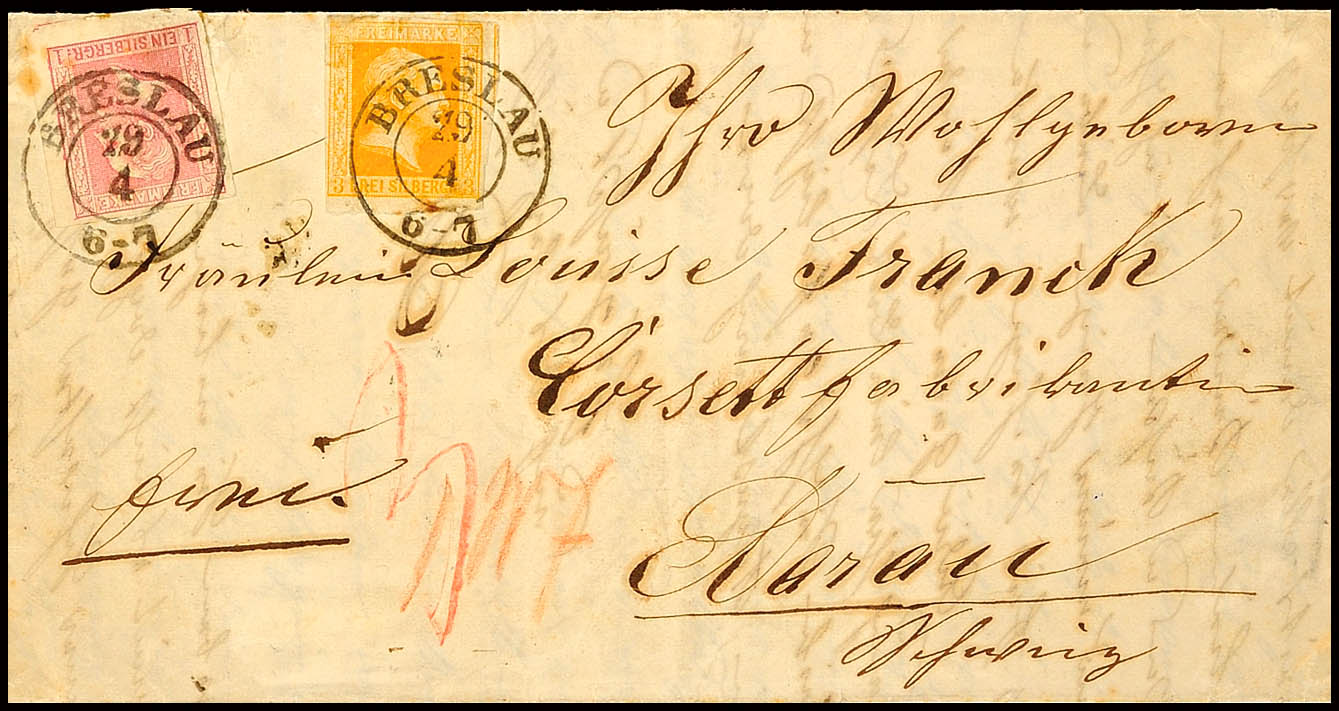 1 EIN SILBERGR. 1
FREIMARKE
BRESLAU
29
4
6-7
FREIMARKE
3 DREI SILBERGR. 3
BRESLAU
29
4
6-7
Ihro Wohlgeboren
Fräulein Louisse Franck
Corsettfabrikantin
in
Aarau
Schweiz
frei.